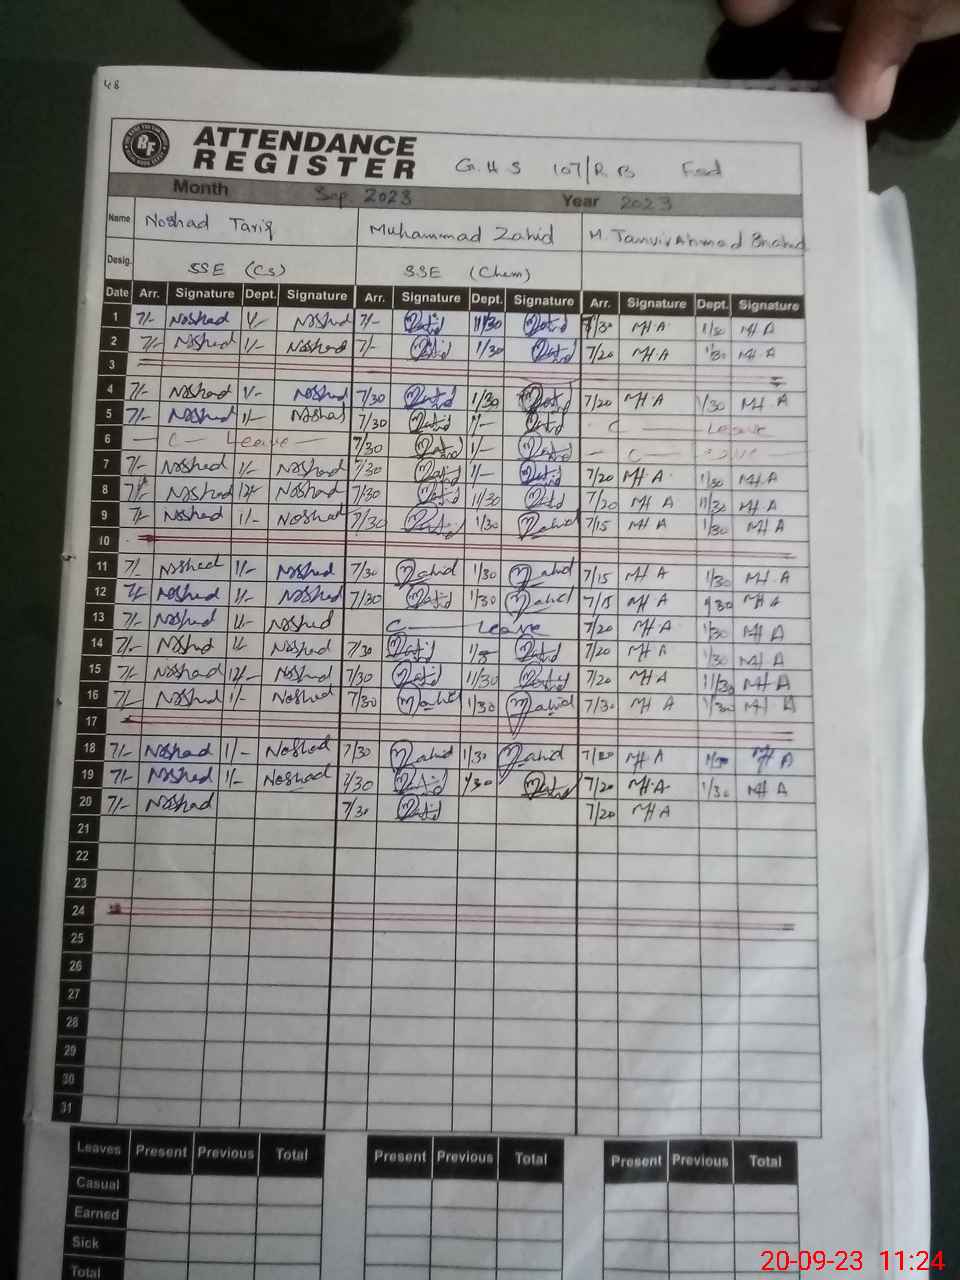 48
BF
ATTENDANCE
REGISTER G.H.S 107/R.B Fsd
Month Sep. 2023 Year 2023
Name Noshad Tariq Muhammad Zahid M. Tanvir Ahmad
Desig. SSE (Cs) SSE (Chem)
Date Arr. Signature Dept. Signature Arr. Signature Dept. Signature Arr. Signature Dept. Signature
1 7/- Noshad 1/- Noshad 7/- Zahid 11/30 Zahid 7/30 MHA 1/30 MHA
2 7/- Noshad 1/- Noshad 7/- Zahid 1/30 Zahid 7/20 MHA 1/30 MHA
3
4 7/- Noshad 1/- Noshad 7/30 Zahid 1/30 Zahid 7/20 MHA 1/30 MHA
5 7/- Noshad 1/- Noshad 7/30 Zahid 1/- Zahid C Leave
6 C Leave 7/30 Zahid 1/- Zahid C Leave
7 7/- Noshad 1/- Noshad 7/30 Zahid 1/- Zahid 7/20 MHA 1/30 MHA
8 7/- Noshad 12/- Noshad 7/30 Zahid 11/30 Zahid 7/20 MHA 11/30 MHA
9 7/- Noshad 1/- Noshad 7/30 Zahid 1/30 Zahid 7/15 MHA 1/30 MHA
10
11 7/- Noshad 1/- Noshad 7/30 Zahid 1/30 Zahid 7/15 MHA 1/30 MHA
12 7/- Noshad 1/- Noshad 7/30 Zahid 1/30 Zahid 7/15 MHA 1/30 MHA
13 7/- Noshad 1/- Noshad C Leave 7/20 MHA 1/30 MHA
14 7/- Noshad 1/- Noshad 7/30 Zahid Zahid 7/20 MHA 1/30 MHA
15 7/- Noshad 12/- Noshad 7/30 Zahid 11/30 Zahid 7/20 MHA 11/30 MHA
16 7/- Noshad 1/- Noshad 7/30 Zahid 1/30 Zahid 7/30 MHA 1/30 MHA
17
18 7/- Noshad 1/- Noshad 7/30 Zahid 1/30 Zahid 7/20 MHA MHA
19 7/- Noshad 1/- Noshad 7/30 Zahid 1/30 Zahid 7/20 MHA 1/30 MHA
20 7/- Noshad 7/30 Zahid 7/20 MHA
21
22
23
24
25
26
27
28
29
30
31
Leaves Present Previous Total Present Previous Total Present Previous Total
Casual
Earned
Sick
Total
20-09-23 11:24